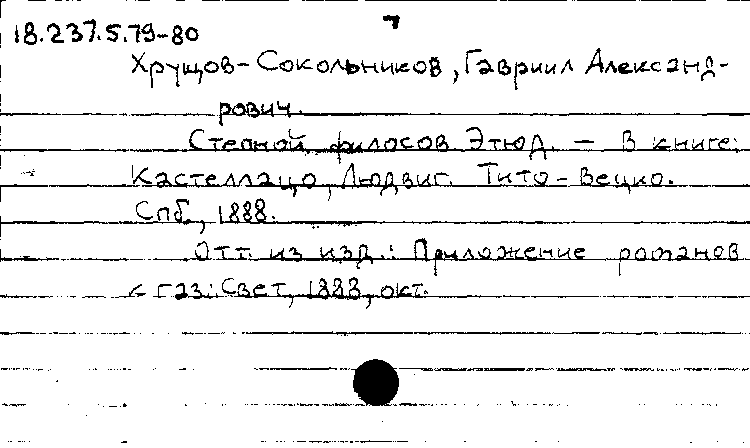 18.237.5.79-80
Хрущов-Сокольников, Гавриил Александ-
рович.
Степной филосов Этюд. — В книге:
Кастеллацо, Людвиг. Тито-Вецио.
Спб., 1888.
Отт. из изд.: Приложение романов
к газ.: Свет, 1888, окт.